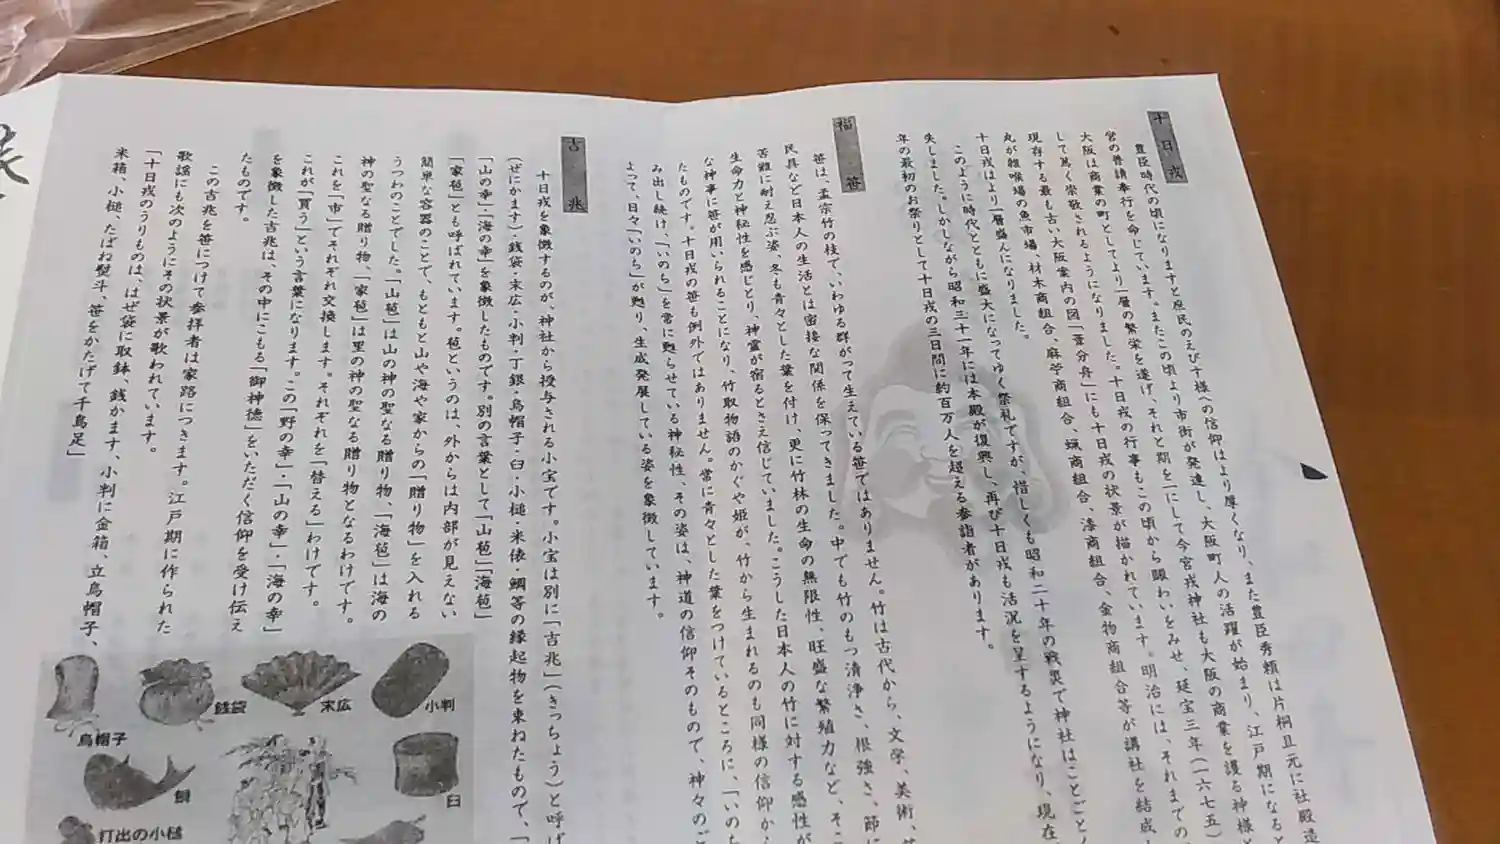 十日戎
豊臣時代の頃になりますと庶民のえびす様への信仰はより厚くなり、また豊臣秀頼は片桐且元に社殿造
宮の普請奉行を命じています。またこの頃より市街が発達し、大阪町人の活躍が始まり、江戸期になると
大阪は商業の町としてより一層の繁栄を遂げ、それと期を一にして今宮戎神社も大阪の商業を護る神様と
して篤く崇敬されるようになりました。十日戎の行事もこの頃から賑わいをみせ、延宝三年(一六七五)
現存する最も古い大阪案内の図「葦分舟」にも十日戎の状景が描かれています。明治には、それまでの
丸が雑喉場の魚市場、材木商組合、麻苧商組合、蝋商組合、漆商組合、金物商組合等が講社を結成
十日戎はより一層盛んになりました。
このように時代とともに盛大になってゆく祭礼ですが、惜しくも昭和二十年の戦災で神社はことごとく
失しました。しかしながら昭和三十一年には本殿が復興し、再び十日戎も活況を呈するようになり、現在
年の最初のお祭りとして十日戎の三日間に約百万人を超える参詣者があります。
福笹
笹は、孟宗竹の枝で、いわゆる群がって生えている笹ではありません。竹は古代から、文学、美術、
民具など日本人の生活とは密接な関係を保ってきました。中でも竹のもつ清浄さ、根強さ、節に
苦難に耐え忍ぶ姿、冬も青々とした葉を付け、更に竹林の生命の無限性、旺盛な繁殖力など、そこ
生命力と神秘性を感じとり、神霊が宿るとさえ信じていました。こうした日本人の竹に対する感性が
な神事に笹が用いられることになり、竹取物語のかぐや姫が、竹から生まれるのも同様の信仰か
たものです。十日戎の笹も例外ではありません。常に青々とした葉をつけているところに、「いのち
み出し続け、「いのち」を常に甦らせている神秘性、その姿は、神道の信仰そのもので、神々のご
よって、日々「いのち」が甦り、生成発展している姿を象徴しています。
吉兆
十日戎を象徴するのが、神社から授与される小宝です。小宝は別に「吉兆」(きっちょう)と呼ば
(ぜにかます)・銭袋・末広・小判・丁銀・烏帽子・臼・小槌・米俵・鯛等の縁起物を束ねたもので、「
「山の幸」・「海の幸」を象徴したものです。別の言葉として「山苞」「海苞」
「家苞」とも呼ばれています。苞というのは、外からは内部が見えない
簡単な容器のことで、もともと山や海や家からの「贈り物」を入れる
うつわのことでした。「山苞」は山の神の聖なる贈り物、「海苞」は海の
神の聖なる贈り物、「家苞」は里の神の聖なる贈り物となるわけです。
これを「市」でそれぞれ交換します。それぞれを「替える」わけです。
これが「買う」という言葉になります。この「野の幸」・「山の幸」・「海の幸」
を象徴した吉兆は、その中にこもる「御神徳」をいただく信仰を受け伝え
たものです。
この吉兆を笹につけて参拝者は家路につきます。江戸期に作られた
歌謡にも次のようにその状景が歌われています。
「十日戎のうりものは、はぜ袋に取鉢、銭かます、小判に金箱、立烏帽子、
米箱、小槌、たばね熨斗、笹をかたげて千鳥足」
小判
末広
銭袋
烏帽子
臼
鯛
打出の小槌